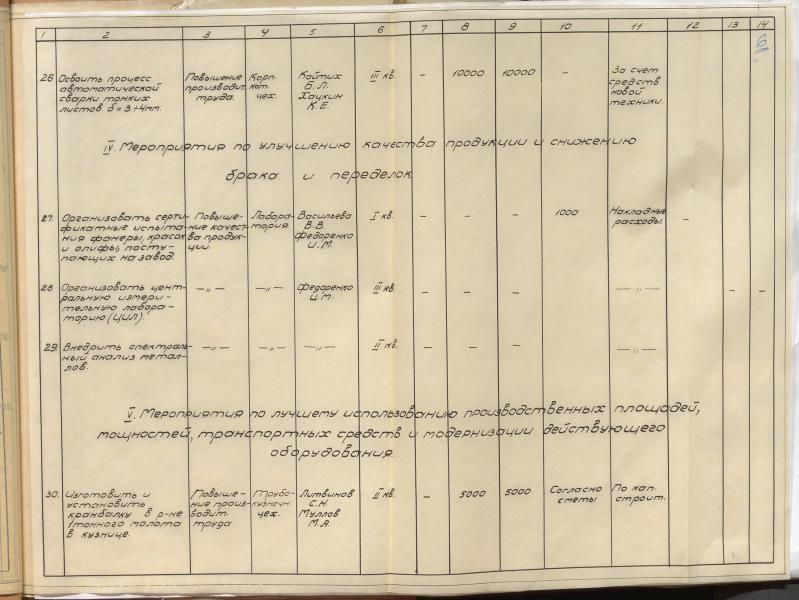 1 2 3 4 5 6 7 8 9 10 11 12 13 14
6
26 Освоить процесс автоматической сварки тонких листов δ=3÷4мм.
Повышение производит. труда.
Корп. кот. цех.
Койтих Б.Л. Хацкин К.Е.
III кв. – 10000 10000 –
За счет средств новой техники.
IV. Мероприятия по улучшению качества продукции и снижению
брака и переделок
27. Организовать серти-
фикатные испыта-
ния фанеры, красок
и олифы, посту-
пающих на завод.
Повыше-
ние качест-
ва продук-
ции.
Лабора-
тория.
Васильева
В.В.
Федоренко
И.М.
I кв. – – – 1000
Накладные
расходы.
–
28 Организовать цент-
ральную измери-
тельную лабора-
торию (ЦИЛ).
—〃— —〃—
Федоренко
И.М.
III кв – – – —〃— – –
29. Внедрить спектраль-
ный анализ метал-
лов.
—〃— —〃— —〃— II кв. – – – —〃—
V. Мероприятия по лучшему использованию производственных площадей,
мощностей, транспортных средств и модернизации действующего
оборудования.
30. Изготовить и
установить
кранбалку в р-не
1тонного молота
в кузнице.
Повыше-
ние произ-
водит.
труда
Трубо-
кузнечн.
цех.
Литвинов
С.Н.
Муллов
М.Я.
II кв. – 5000 5000
Согласно
сметы
По кап.
строит.